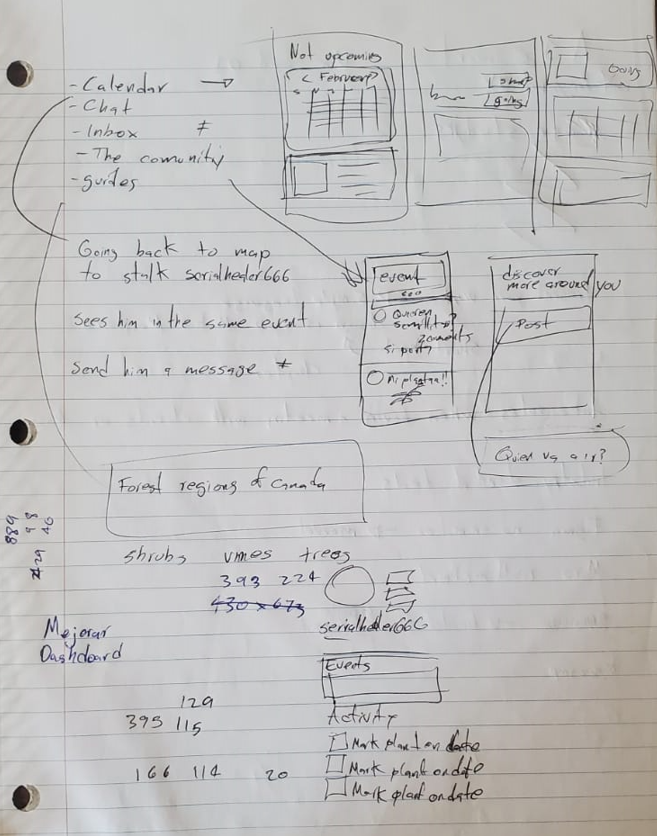 Not upcoming
< February >
- Calendar →
- Chat
- Inbox *
- The comunity
- guides
going
Going
Going back to map
to stalk serialhealer666
Sees him in the same event
Send him a message *
event
Quieren
Si porfi
discover
more around you
Post
Quien va a ir?
Forest regions of Canada
shrubs vines trees
393 224
430 x 673
889
98
29 46
serialhealer666
Mejorar
Dashboard
Events
129
395 115
Activity
Mark plant on date
166 114 20
Mark plant on date
Mark plant on date